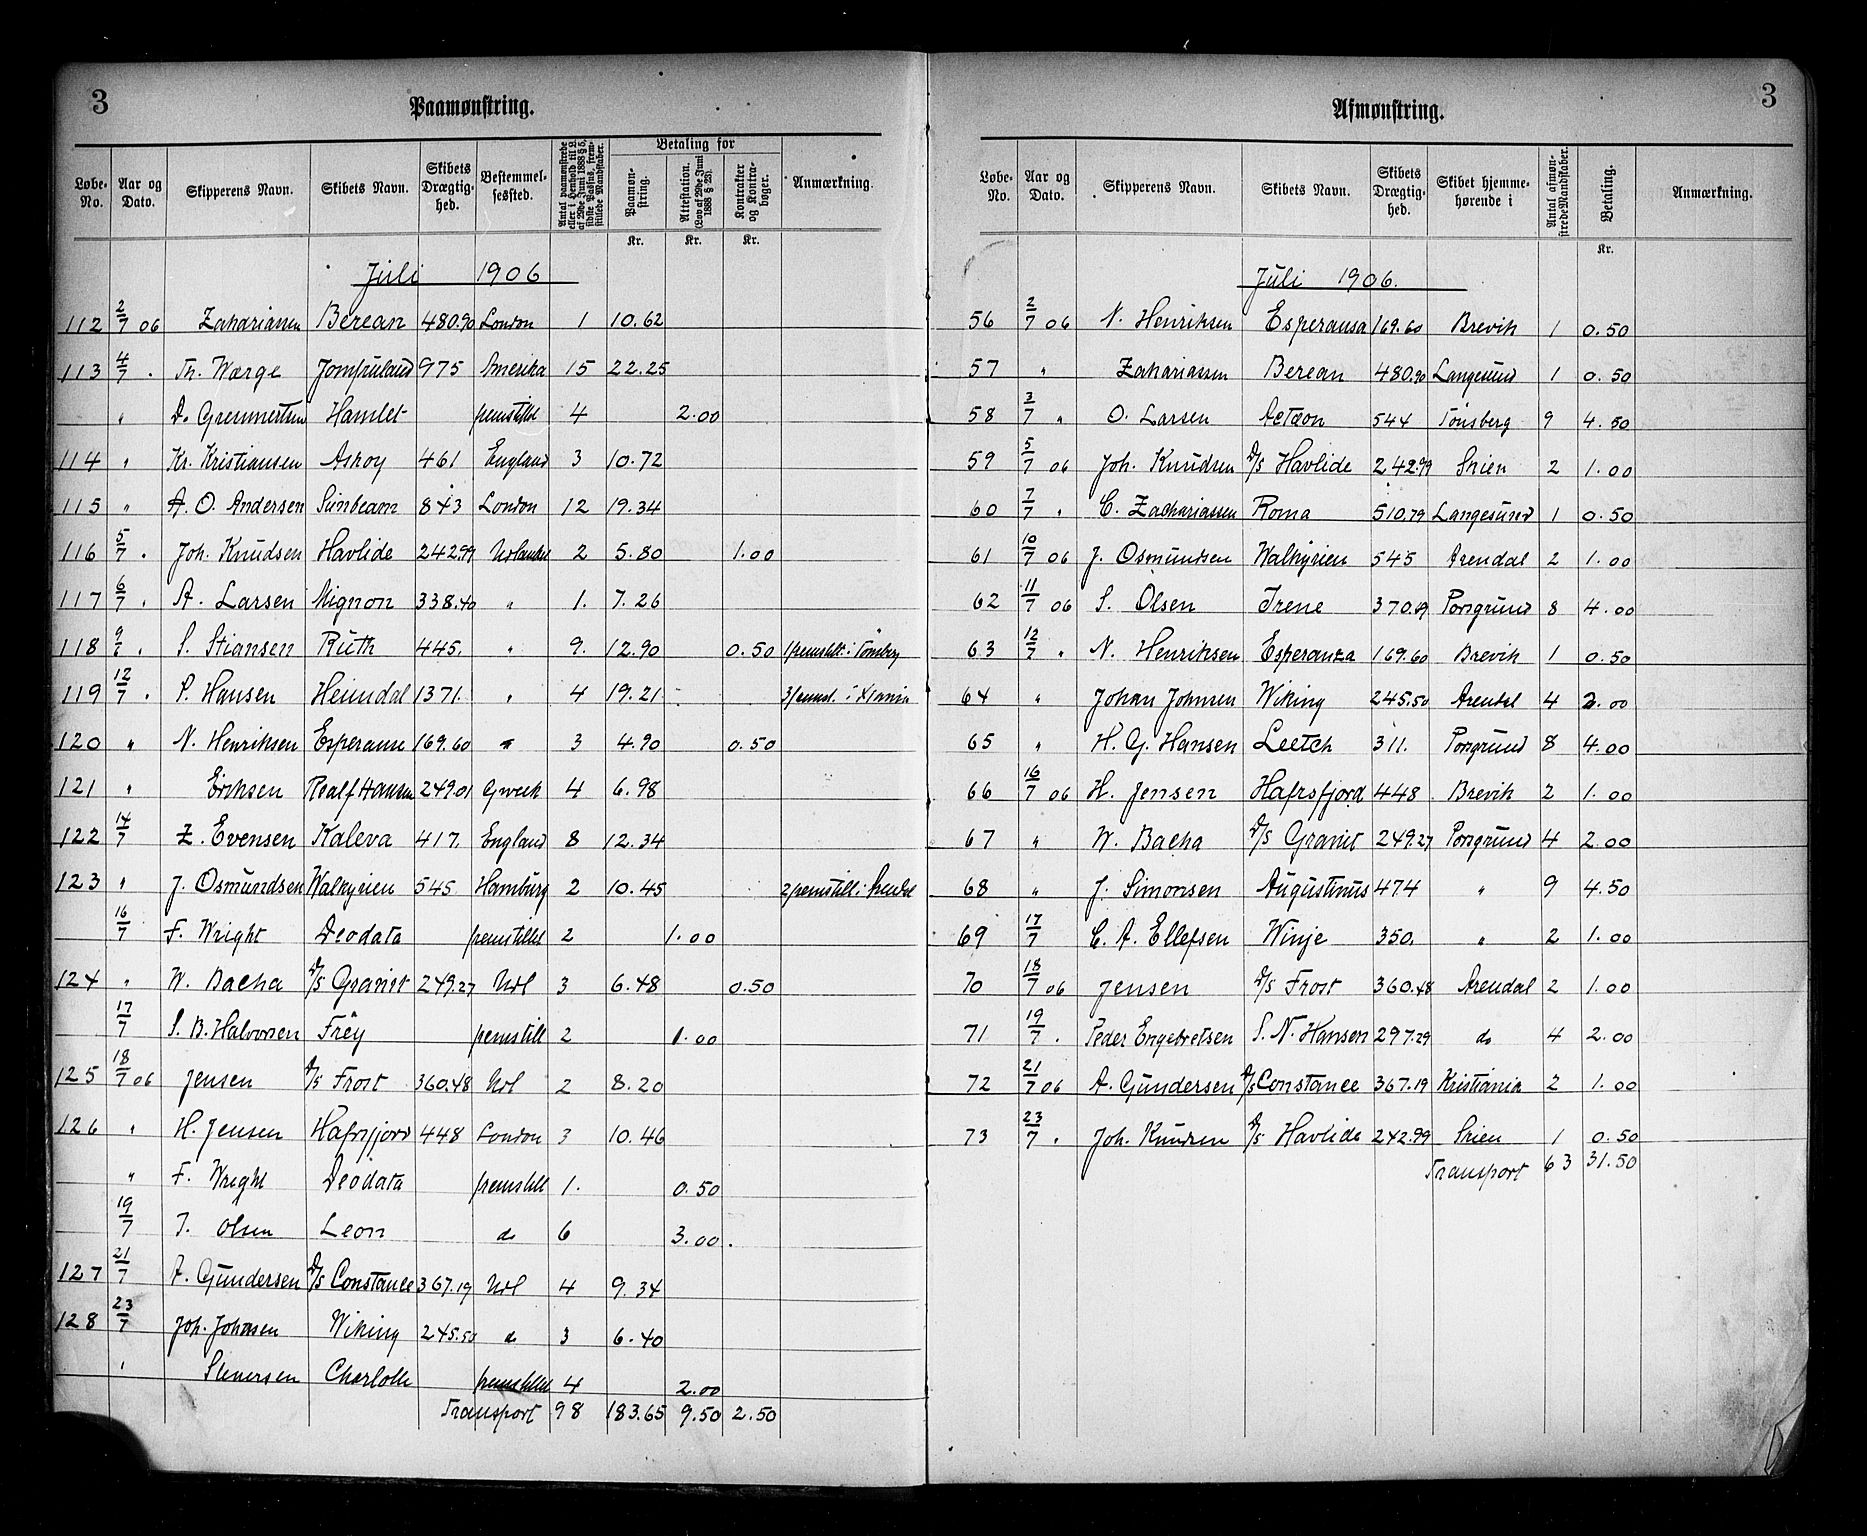 3
Paamønstring.
Løbe-No. Aar og Dato. Skipperens Navn. Skibets Navn. Skibets Drægtighed. Bestemmelsessted. Antal paamønstrede eller i Henhold til L. af 29de Juni 1888 § 5, sidste Passus, fremstillede Mandskaber. Betaling for Paamønstring. Attestation. (Lov af 29de Juni 1888 § 23). Kontrakter og Kontrabøger. Anmærkning.
Kr. Kr. Kr.
Juli 1906
112 2/7 06 Zachariassen Berean 480.90 London 1 10.62
113 4/7 . Th. Wærge Jomfruland 975 Amerika 15 22.25
" D. Gremmertsen Hamlet fremstillet 4 2.00
114 " Kr. Kristiansen Askoy 461 England 3 10.72
115 " A. O. Andersen Sunbeam 843 London 12 19.34
116 5/7 . Joh. Knudsen Havlide 242.99 Udlandet 2 5.80 1.00
117 6/7 . A. Larsen Mignon 338.40 " 1. 7.26
118 9/7 . S. Stiansen Ruth 445. " 9. 12.90 0.50 1 fremstillt i Tönsberg
119 12/7 . P. Hansen Heimdal 1371. " 4 19.21 3 fremst. i Xiania
120 " N. Henriksen Esperanse 169.60 " 3 4.90 0.50
121 " Eriksen Realf Hansen 249.01 Gweek 4 6.98
122 14/7 Z. Evensen Kaleva 417. England 8 12.34
123 " J. Osmundsen Walkyrien 545 Hamburg 2 10.45 2 fremstill. i Arendal
16/7 F. Wright Deodata fremstillet 2 1.00
124 " W. Bacha D/S Granit 249.27 Udl 3 6.48 0.50
17/7 S. B. Halvorsen Frey fremstill 2 1.00
125 18/7 06 Jensen D/S Frost 360.48 Udl 2 8.20
126 " H. Jensen Hafrsfjord 448 London 3 10.46
" F. Wright Deodata fremstill 1. 0.50
19/7 T. Olsen Leon do 6 3.00.
127 21/7 A. Gundersen D/S Constance 367.19 Udl 4 9.34
128 23/7 Joh. Johnsen Wiking 245.50 do 3 6.40
" Sieversen Charlotte fremstillet 4 2.00
Transport 98 183.65 9.50 2.50
3
Afmønstring.
Løbe-No. Aar og Dato. Skipperens Navn. Skibets Navn. Skibets Drægtighed. Skibet hjemmehørende i Antal afmønstrede Mandskaber. Betaling. Anmærkning.
Kr.
Juli 1906.
56 2/7 06 N. Henriksen Esperansa 169.60 Brevik 1 0.50
57 " Zachariassen Berean 480.90 Langesund 1 0.50
58 3/7 " O. Larsen Actæon 544 Tönsberg 9 4.50
59 5/7 06 Joh. Knudsen D/S Havlide 242.99 Skien 2 1.00
60 7/7 " C. Zachariassen Roma 510.79 Langesund 1 0.50
61 10/7 06 J. Osmundsen Walkyrien 545 Arendal 2 1.00
62 11/7 06 S. Olsen Irene 370.49 Porsgrund 8 4.00
63 12/7 " N. Henriksen Esperanza 169.60 Brevik 1 0.50
64 " Johan Johnsen Wiking 245.50 Arendal 4 2.00
65 " H. G. Hansen Leetch 311. Porsgrund 8 4.00
66 16/7 06 H. Jensen Hafrsfjord 448 Brevik 2 1.00
67 " W. Bacha D/S Granit 249.27 Porsgrund 4 2.00
68 " J. Simonsen Augustinus 474 " 9 4.50
69 17/7 C. A. Ellefsen Winje 350. " 2 1.00
70 18/7 06 Jensen D/S Frost 360.48 Arendal 2 1.00
71 19/7 . Peder Engebretsen S. N. Hansen 297.29 do 4 2.00
72 21/7 06 A. Gundersen D/S Constance 367.19 Kristiania 2 1.00
73 23/7 . Joh. Knudsen D/S Havlide 242.99 Skien 1 0.50
Transport 63 31.50